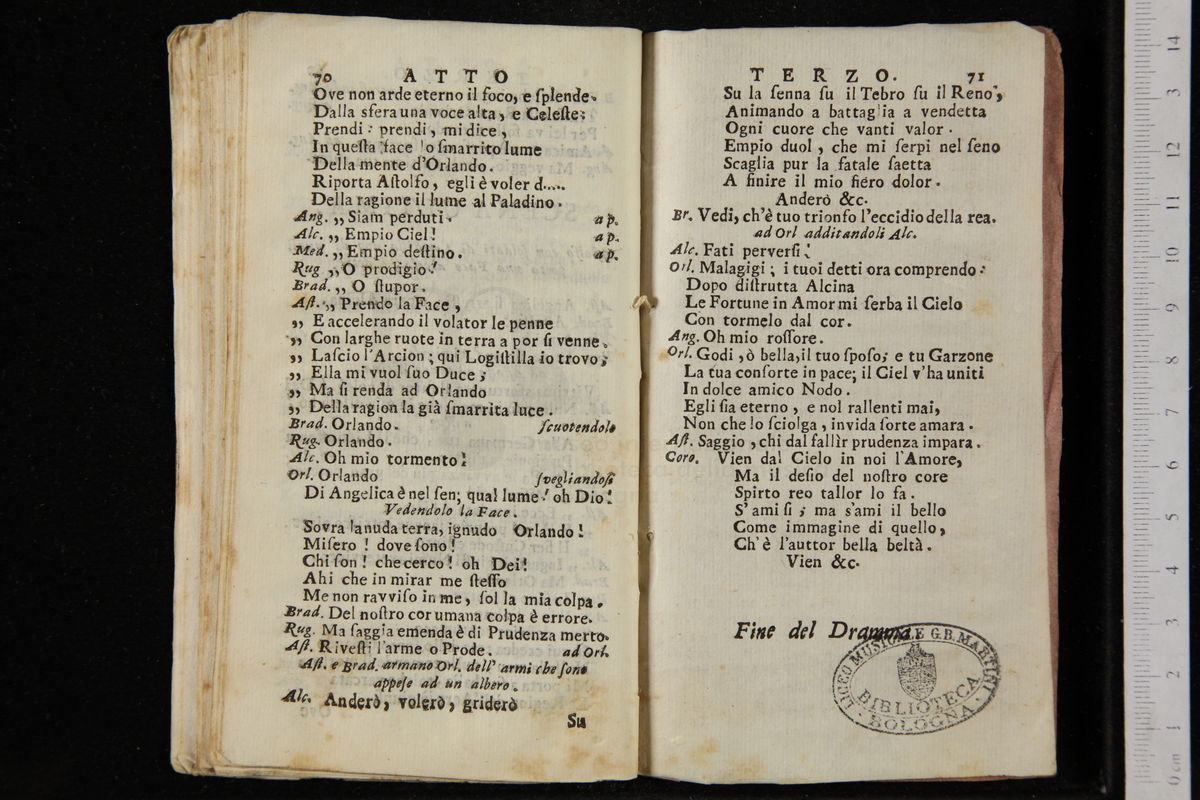 70 ATTO
Ove non arde eterno il foco, e ſplende.
Dalla sfera una voce alta, e Celeſte:
Prendi: prendi, mi dice,
In queſta face lo ſmarrito lume
Della mente d'Orlando.
Riporta Aſtolfo, egli è voler d.....
Della ragione il lume al Paladino.
Ang. „ Siam perduti. a p.
Alc. „ Empio Ciel! a p.
Med. „ Empio deſtino. a p.
Rug „ O prodigio!
Brad. „ O ſtupor.
Aſt. „ Prendo la Face,
„ E accelerando il volator le penne
„ Con larghe ruote in terra a por ſi venne.
„ Laſcio l'Arcion; qui Logiſtilla io trovo;
„ Ella mi vuol ſuo Duce;
„ Ma ſi renda ad Orlando
„ Della ragion la già ſmarrita luce.
Brad. Orlando. ſcuotendolo
Rug. Orlando.
Alc. Oh mio tormento!
Orl. Orlando ſvegliandoſi
Di Angelica è nel ſen; qual lume! oh Dio!
Vedendolo la Face.
Sovra la nuda terra, ignudo Orlando!
Miſero! dove ſono!
Chi ſon! che cerco! oh Dei!
Ahi che in mirar me ſteſſo
Me non ravviſo in me, ſol la mia colpa.
Brad. Del noſtro cor umana colpa è errore.
Rug. Ma ſaggia emenda è di Prudenza merto.
Aſt. Riveſti l'arme o Prode. ad Orl.
Aſt. e Brad. armano Orl. dell' armi che ſono
appeſe ad un albero.
Alc. Anderò, volerò, griderò
Su
TERZO. 71
Su la ſenna ſu il Tebro ſu il Reno,
Animando a battaglia a vendetta
Ogni cuore che vanti valor.
Empio duol, che mi ſerpi nel ſeno
Scaglia pur la fatale ſaetta
A finire il mio fiero dolor.
Anderò &c.
Br. Vedi, ch'è tuo trionfo l'eccidio della rea.
ad Orl additandoli Alc.
Alc. Fati perverſi!
Orl. Malagigi; i tuoi detti ora comprendo:
Dopo diſtrutta Alcina
Le Fortune in Amor mi ſerba il Cielo
Con tormelo dal cor.
Ang. Oh mio roſſore.
Orl. Godi, ò bella, il tuo ſpoſo; e tu Garzone
La tua conſorte in pace; il Ciel v'ha uniti
In dolce amico Nodo.
Egli ſia eterno, e nol rallenti mai,
Non che lo ſciolga, invida ſorte amara.
Aſt. Saggio, chi dal fallìr prudenza impara.
Coro. Vien dal Cielo in noi l'Amore,
Ma il deſio del noſtro core
Spirto reo tallor lo fa.
S' ami ſi; ma s'ami il bello
Come immagine di quello,
Ch' è l'auttor bella beltà.
Vien &c.
Fine del Dramma.
LICEO MUSICALE G.B. MARTINI
BIBLIOTECA
BOLOGNA
0 cm 1 2 3 4 5 6 7 8 9 10 11 12 3 14